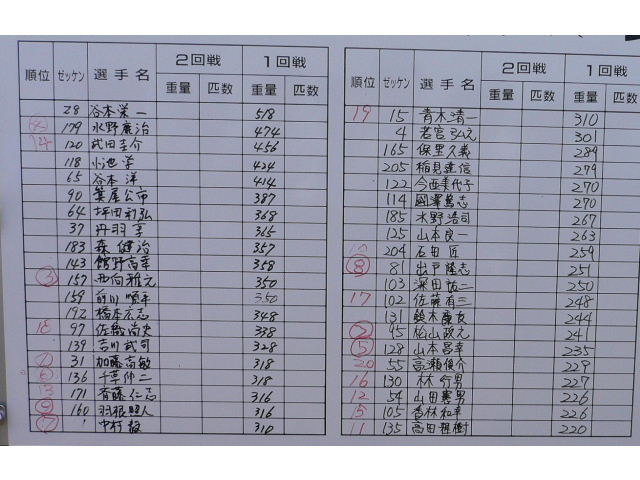 2回戦 1回戦
順位 ゼッケン 選手名 重量 匹数 重量 匹数
28 谷本栄一 518
179 水野廣治 474
14 120 武田圭介 456
118 小池学 424
65 谷本洋 414
90 箕尾公市 387
64 坪田和弘 368
37 丹羽享 365
183 森健治 357
143 館野高幸 358
③ 157 西向雅之 350
159 前川順平 350
192 橋本広志 348
18 97 佐織尚史 338
139 吉川武司 328
31 加藤高敏 318
136 千草伸二 318
171 斉藤仁志 316
⑨ 160 羽根照人 316
⑦ 中村 310
2回戦 1回戦
順位 ゼッケン 選手名 重量 匹数 重量 匹数
19 15 青木清一 310
4 若宮 301
165 保里久義 289
205 稲見達信 279
122 今西美代子 270
114 國澤篤志 270
185 水野浩司 267
125 山本良一 263
204 石田匠 259
⑧ 81 出戸隆志 251
103 深田拓二 250
17 102 佐藤有三 248
131 鈴木康友 244
② 95 柏山政之 241
⑤ 128 山本昌幸 235
20 55 高瀬俊介 229
16 130 林行男 227
12 54 山田憲男 226
15 105 香林和幸 226
11 135 高田雅樹 220